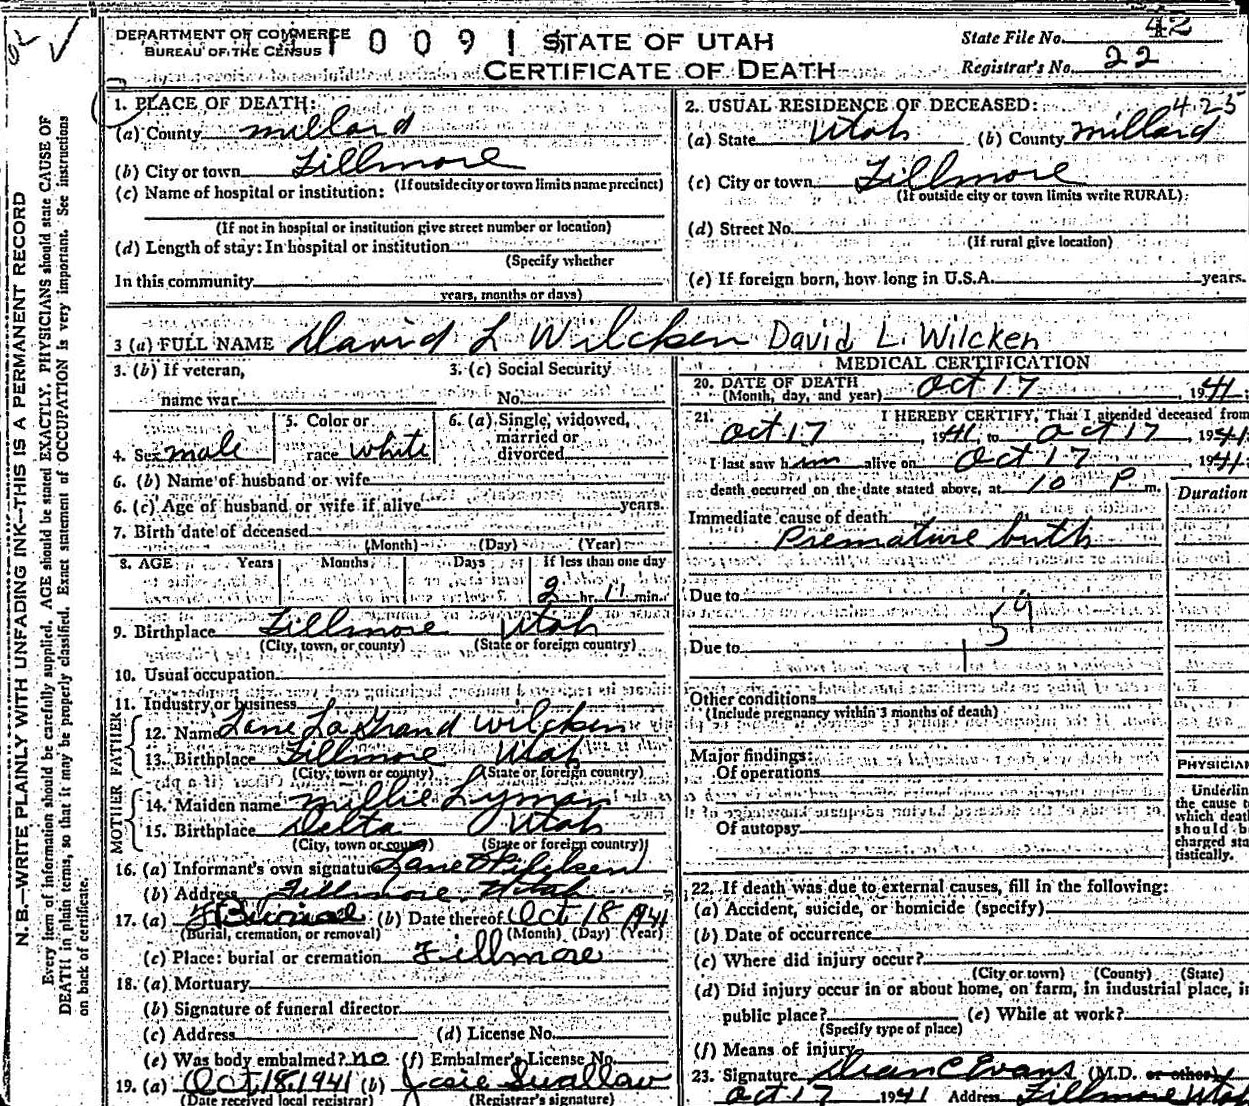 DEPARTMENT OF COMMERCE
BUREAU OF THE CENSUS
STATE OF UTAH
CERTIFICATE OF DEATH
State File No. 42
Registrar's No. 22
N. B.—WRITE PLAINLY WITH UNFADING INK—THIS IS A PERMANENT RECORD
Every item of information should be carefully supplied. AGE should be stated EXACTLY. PHYSICIANS should state CAUSE OF
DEATH in plain terms, so that it may be properly classified. Exact statement of OCCUPATION is very important. See instructions
on back of certificate.
1. PLACE OF DEATH:
(a) County Millard
(b) City or town Fillmore
(If outside city or town limits name precinct)
(c) Name of hospital or institution:
(If not in hospital or institution give street number or location)
(d) Length of stay: In hospital or institution
(Specify whether
In this community
years, months or days)
2. USUAL RESIDENCE OF DECEASED: 425
(a) State Utah (b) County Millard
(c) City or town Fillmore
(If outside city or town limits write RURAL)
(d) Street No.
(If rural give location)
(e) If foreign born, how long in U.S.A. years.
3 (a) FULL NAME David L Wilcken David L. Wilcken
3. (b) If veteran,
name war
3. (c) Social Security
No.
4. Sex male
5. Color or
race white
6. (a) Single, widowed,
married or
divorced
6. (b) Name of husband or wife
6. (c) Age of husband or wife if alive years.
7. Birth date of deceased
(Month) (Day) (Year)
8. AGE Years Months Days If less than one day
2 hr. 11 min.
9. Birthplace Fillmore Utah
(City, town, or county) (State or foreign country)
10. Usual occupation
11. Industry or business
FATHER
12. Name Lane La Grand Wilcken
13. Birthplace Fillmore Utah
(City, town or county) (State or foreign country)
MOTHER
14. Maiden name Millie Lyman
15. Birthplace Delta Utah
(City, town or county) (State or foreign country)
16. (a) Informant's own signature Lane Wilcken
(b) Address Fillmore, Utah
17. (a) Burial (b) Date thereof Oct 18 1941
(Burial, cremation, or removal) (Month) (Day) (Year)
(c) Place: burial or cremation Fillmore
18. (a) Mortuary
(b) Signature of funeral director
(c) Address (d) License No.
(e) Was body embalmed? no (f) Embalmer's License No.
19. (a) Oct. 18, 1941 (b) Josie Swallow
(Date received local registrar) (Registrar's signature)
MEDICAL CERTIFICATION
20. DATE OF DEATH
(Month, day, and year) Oct 17, 1941
21. I HEREBY CERTIFY, That I attended deceased from
Oct 17, 1941 to Oct 17, 1941
I last saw him alive on Oct 17, 1941
death occurred on the date stated above, at 10 P m.
Duration
Immediate cause of death
Premature birth
Due to
159
Due to
Other conditions
(Include pregnancy within 3 months of death)
Major findings:
Of operations
Of autopsy
PHYSICIAN
Underlin
the cause t
which deat
should b
charged sta
tistically.
22. If death was due to external causes, fill in the following:
(a) Accident, suicide, or homicide (specify)
(b) Date of occurrence
(c) Where did injury occur?
(City or town) (County) (State)
(d) Did injury occur in or about home, on farm, in industrial place, in
public place? (e) While at work?
(Specify type of place)
(f) Means of injury
23. Signature Dean C Evans (M.D. or other)
Oct 17 1941 Address Fillmore Utah